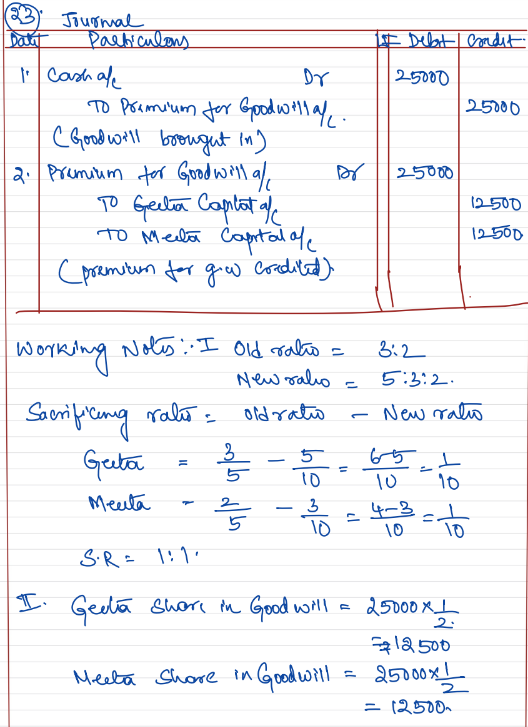 23. Journal
Date Particulars LF Debt Credit
1. Cash a/c Dr 25000
To Premium for Goodwill a/c. 25000
(Goodwill brought in)
2. Premium for Goodwill a/c Dr 25000
To Geeta Capital a/c 12500
To Meeta Capital a/c 12500
(premium for g.w credited).
Working Notes:- I Old ratio = 3:2
New ratio = 5:3:2.
Sacrificing ratio = old ratio - New ratio
Geeta = 3/5 - 5/10 = 6-5/10 = 1/10
Meeta - 2/5 - 3/10 = 4-3/10 = 1/10
S.R = 1:1.
II. Geeta Share in Goodwill = 25000 x 1/2.
= 12500
Meeta Share in Goodwill = 25000 x 1/2
= 12500.